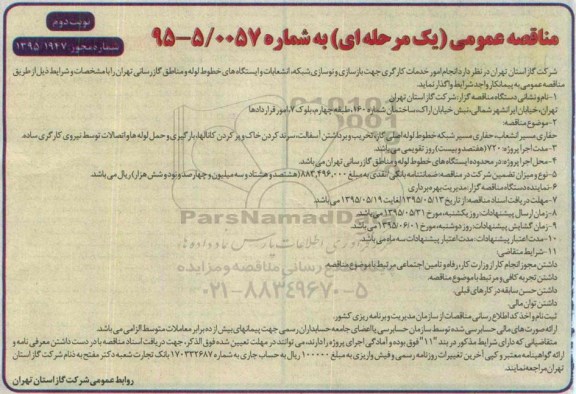 نوبت دوم
شماره مجوز: ۱۳۹۵،۱۹۴۷
مناقصه عمومی (یک مرحله ای) به شماره ۹۵-۵/۰۰۵۷
شرکت گاز استان تهران در نظر دارد انجام امور خدمات کارگری جهت بازسازی و نوسازی شبکه، انشعابات و ایستگاه های خطوط لوله و مناطق گازرسانی تهران را با مشخصات و شرایط ذیل از طریق
مناقصه عمومی به پیمانکار واجد شرایط واگذار نماید.
۱-نام و نشانی دستگاه مناقصه گزار: شرکت گاز استان تهران
تهران، خیابان ایرانشهر شمالی، نبش خیابان اراک، ساختمان شماره ۱۶۰، طبقه چهارم، بلوک ۷، امور قراردادها
۲-موضوع مناقصه:
حفاری مسیر انشعاب، حفاری مسیر شبکه خطوط لوله اصلی گاز، تخریب و برداشتن آسفالت، سرند کردن خاک و پر کردن کانالها، بارگیری و حمل لوله ها و اتصالات توسط نیروی کارگری ساده.
۳-مدت اجرا پروژه: ۷۲۰ (هفتصد و بیست) روز تقویمی می باشد.
۴-محل اجرا پروژه: در محدوده ایستگاه های خطوط لوله و مناطق گازرسانی تهران می باشد.
۵-نوع و میزان تضمین شرکت در مناقصه: ضمانتنامه بانکی / نقدی به مبلغ ۸۸۳,۴۹۶,۰۰۰ (هشتصد و هشتاد و سه میلیون و چهارصد و نود و شش هزار) ریال می باشد.
۶-نماینده دستگاه مناقصه گزار: مدیریت بهره برداری
۷-مهلت دریافت اسناد مناقصه: از تاریخ ۱۳۹۵/۰۵/۱۳ لغایت ۱۳۹۵/۰۵/۱۹ می باشد.
۸-زمان ارسال پیشنهادات: روز یکشنبه، مورخ ۱۳۹۵/۰۵/۳۱ می باشد.
۹-زمان گشایش پیشنهادات: روز دوشنبه، مورخ ۱۳۹۵/۰۶/۰۱ می باشد.
۱۰-مدت اعتبار پیشنهادات: مدت اعتبار پیشنهادات سه ماه می باشد.
۱۱-شرایط متقاضی:
داشتن مجوز انجام کار از وزارت کار، رفاه و تامین اجتماعی مرتبط با موضوع مناقصه.
داشتن تجربه کافی و مرتبط با موضوع مناقصه.
داشتن حسن سابقه در کارهای قبلی.
داشتن توان مالی.
ثبت نام و اخذ کد اطلاع رسانی مناقصات از سازمان مدیریت و برنامه ریزی کشور.
ارائه صورت های مالی حسابرسی شده توسط سازمان حسابرسی یا اعضای جامعه حسابداران رسمی جهت پیمانهای بیش از ده برابر معاملات متوسط الزامی می باشد.
متقاضیانی که دارای شرایط مذکور در بند "۱۱" فوق بوده و آمادگی اجرای پروژه را دارند، می توانند در مهلت تعیین شده فوق الذکر، جهت دریافت اسناد مناقصه با در دست داشتن معرفی نامه و
ارائه گواهینامه معتبر و کپی آخرین تغییرات روزنامه رسمی و فیش واریزی به مبلغ ۱۰۰۰۰۰ ریال به حساب جاری به شماره ۱۷۰۳۳۲۶۸۷ بانک تجارت شعبه دکتر مفتح به نام شرکت گاز استان
تهران مراجعه نمایند.
روابط عمومی شرکت گاز استان تهران
ParsNamadData
پایگاه خبری اطلاع رسانی مناقصه و مزایده
۰۲۱-۸۸۳۴۹۶۷۰-۵